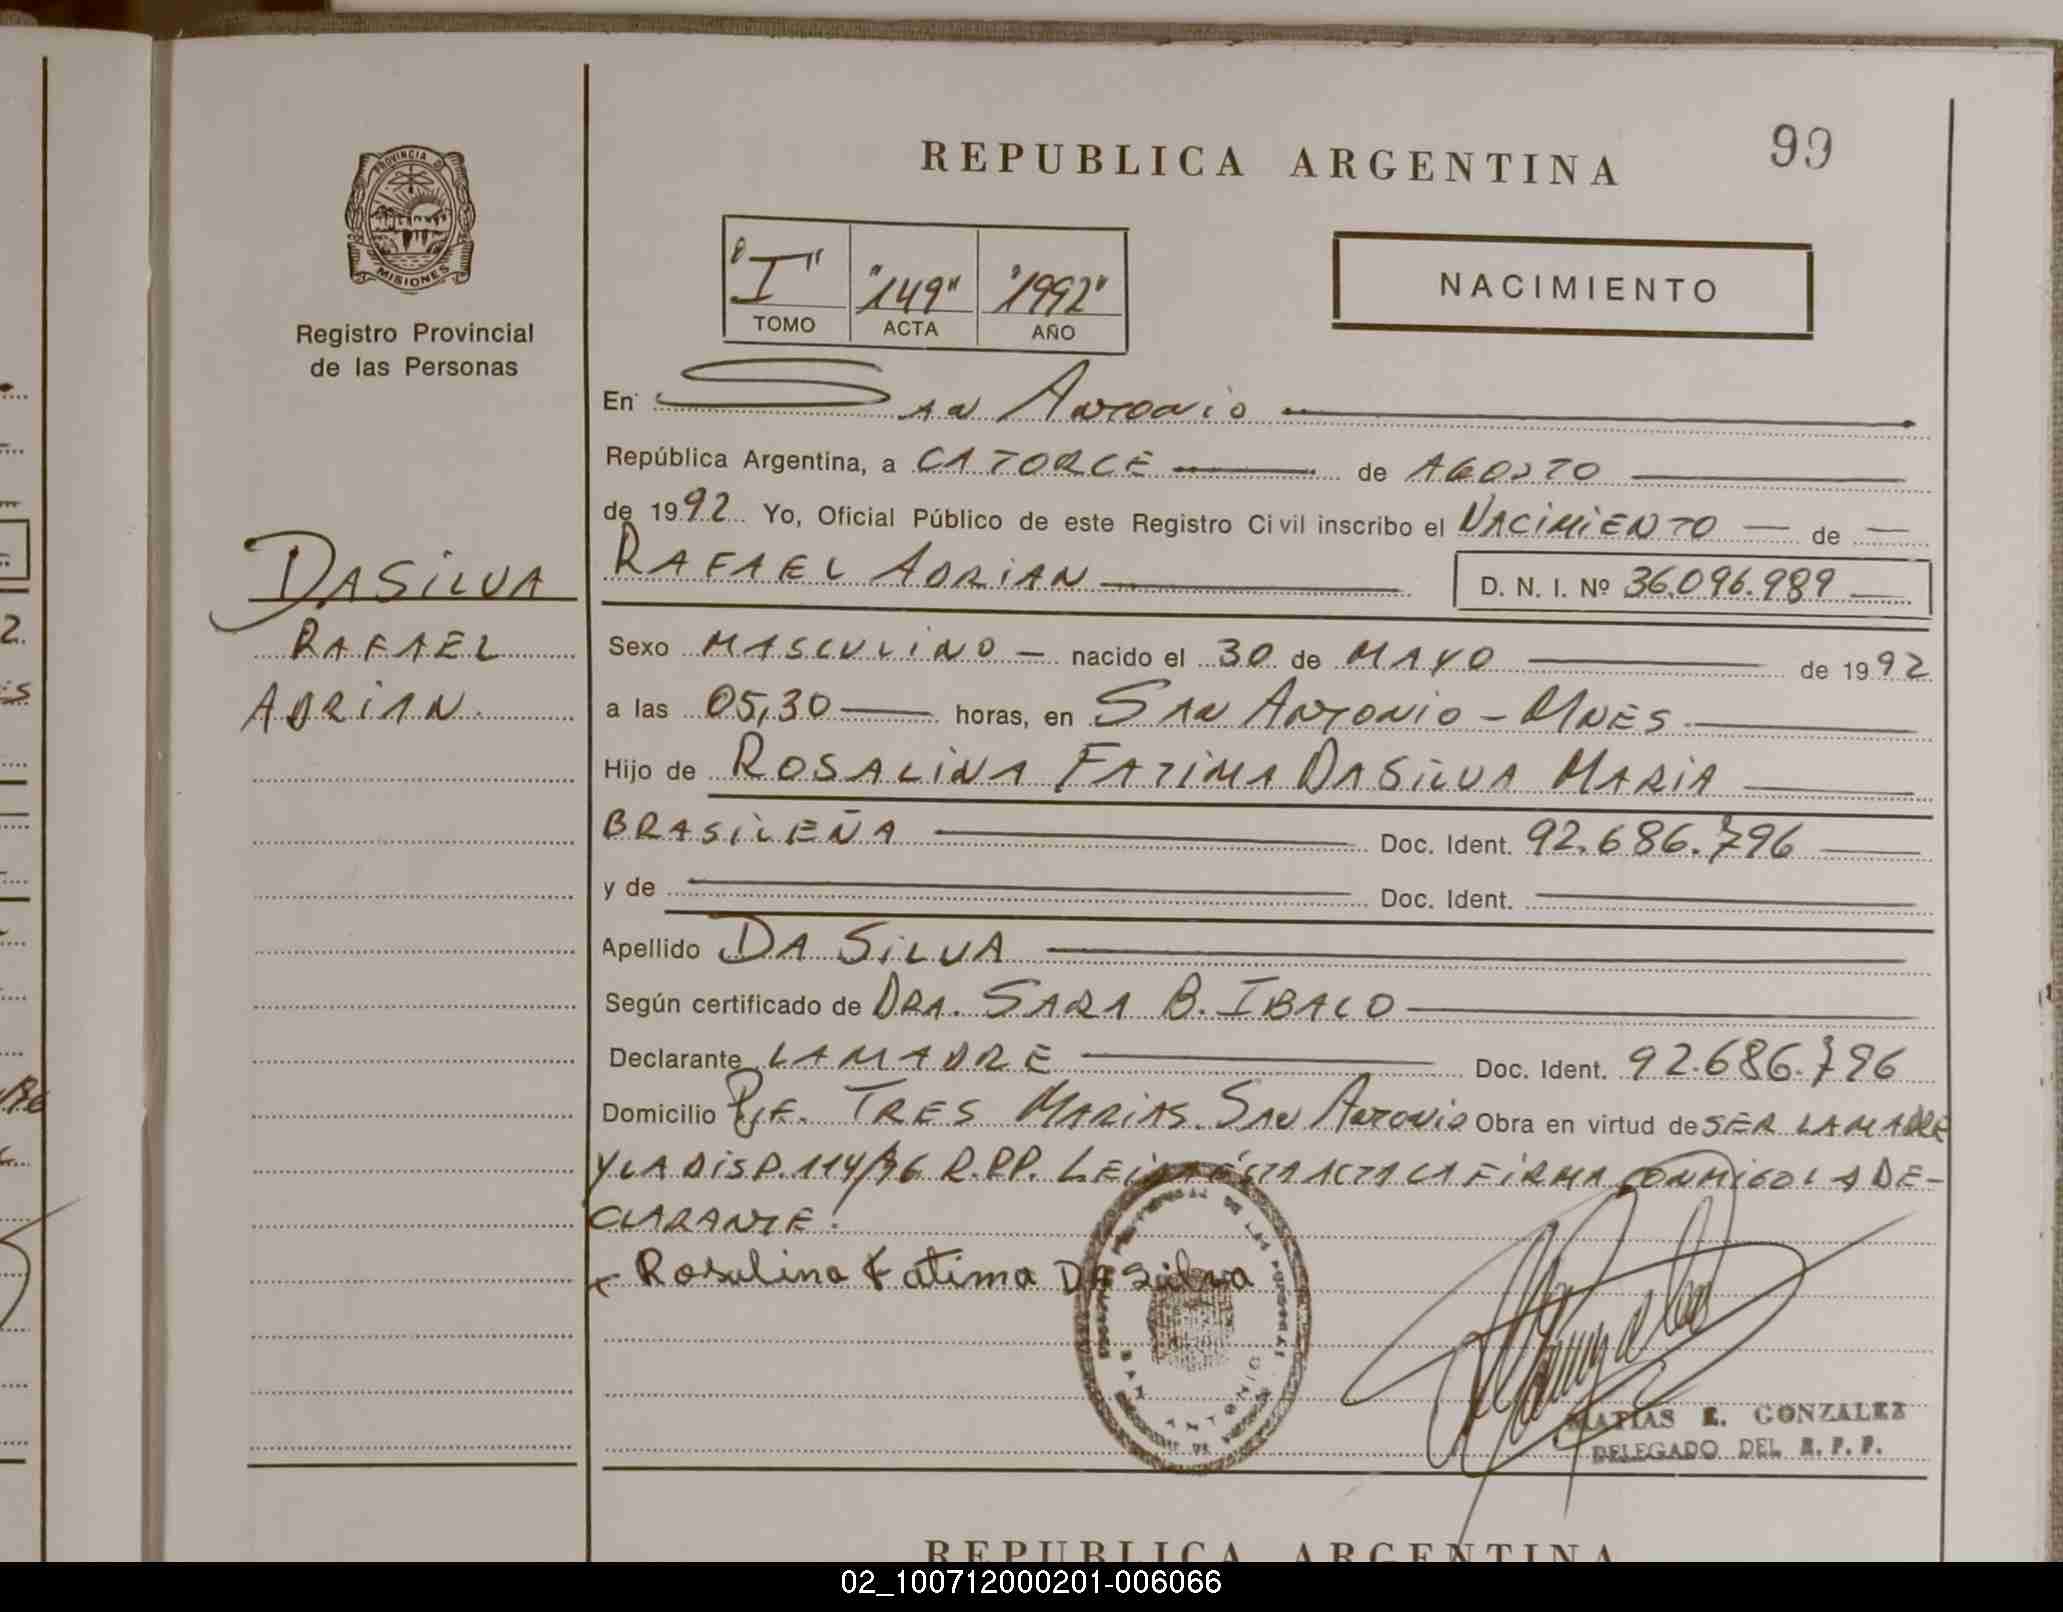 99
REPUBLICA ARGENTINA
PROVINCIA DE
MISIONES
Registro Provincial
de las Personas
"I" "149" "1992"
TOMO ACTA AÑO
NACIMIENTO
En San Antonio
República Argentina, a CATORCE de AGOSTO
de 1992 Yo, Oficial Público de este Registro Civil inscribo el NACIMIENTO de
RAFAEL ADRIAN D. N. I. Nº 36.096.989
DASILVA
RAFAEL
ADRIAN
Sexo MASCULINO nacido el 30 de MAYO de 1992
a las 05,30 horas, en SAN ANTONIO - MNES
Hijo de ROSALINA FATIMA DASILVA MARIA
BRASILEÑA Doc. Ident. 92.686.796
y de Doc. Ident.
Apellido DA SILVA
Según certificado de DRA. SARA B. IBALO
Declarante LA MADRE Doc. Ident. 92.686.796
Domicilio PJE. TRES MARIAS. SAN ANTONIO Obra en virtud de SER LA MADRE
Y LA DISP. 114/96 R.P.P. LEIDA ÉSTA ACTA LA FIRMA CONMIGO LA DE-
CLARANTE.
x Rosalina Fatima DA Silva
SAN ANTONIO
MATIAS E. GONZALEZ
DELEGADO DEL R. P. P.
REPUBLICA ARGENTINA
02_100712000201-006066